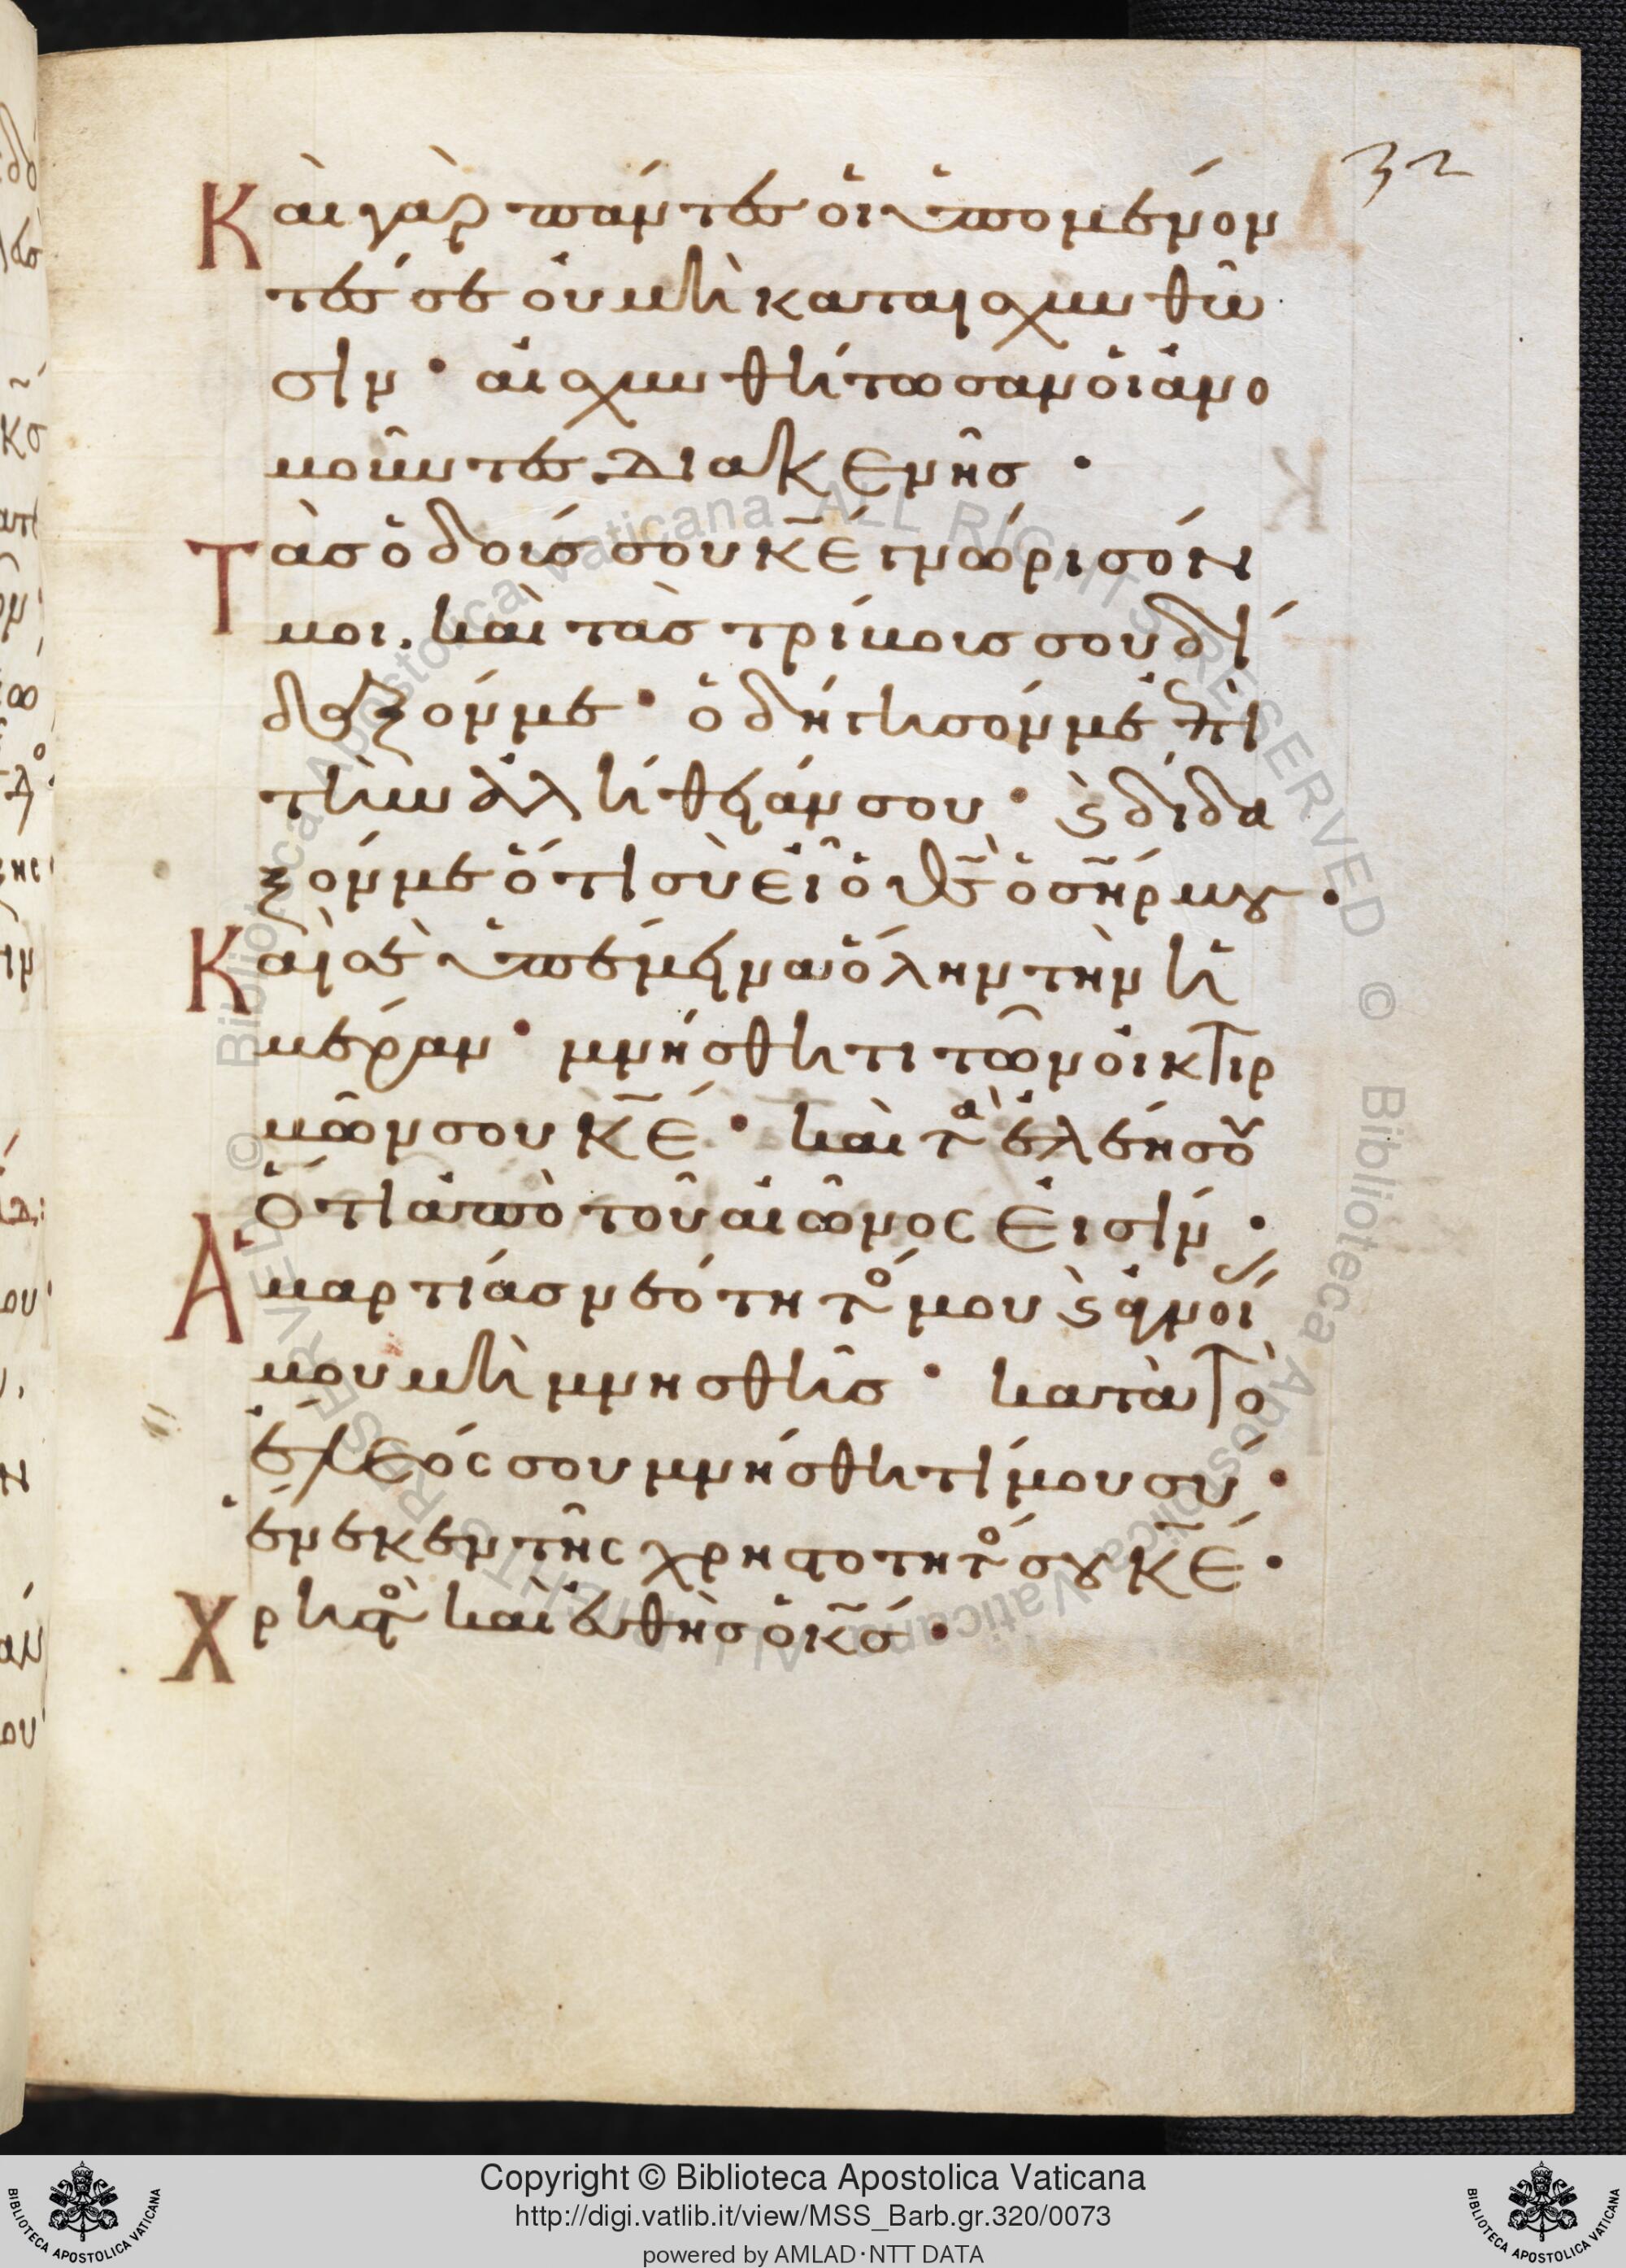 32
Καὶ γὰρ πάντες οἱ ὑπομένον
τές σε οὐ μὴ καταισχυνθῶ
σιν · αἰσχυνθήτωσαν οἱ ἀνο
μοῦντες διακενῆς ·
Τὰς ὁδούς σου κ̅ε̅ γνώρισόν
μοι, καὶ τὰς τρίβους σου δί
δαξόν με · ὁδήγησόν με ἐπὶ
τὴν ἀλήθειάν σου · ϗ δίδα
ξόν με ὅτι σὺ εἶ ὁ θ̅ς̅ ὁ σ̅η̅ρ μου ·
Καὶ σὲ ὑπέμεινα ὅλην τὴν ἡ
μέραν · μνήσθητι τῶν οἰκτιρ
μῶν σου κ̅ε̅ · καὶ τὰ ἐλέη σου
ὅτι ἀπὸ τοῦ αἰῶνος εἰσίν ·
Ἁμαρτίας νεότητός μου ϗ ἀγνοί
μου μὴ μνησθῇς · κατὰ τὸ
ἔλεός σου μνήσθητί μου σύ ·
ἕνεκεν τῆς χρηστότητός σου κ̅ε̅ ·
Χρηστὸς καὶ εὐθὴς ὁ κ̅ς̅ ·
Copyright © Biblioteca Apostolica Vaticana
http://digi.vatlib.it/view/MSS_Barb.gr.320/0073
powered by AMLAD·NTT DATA
BIBLIOTECA APOSTOLICA VATICANA
BIBLIOTECA APOSTOLICA VATICANA